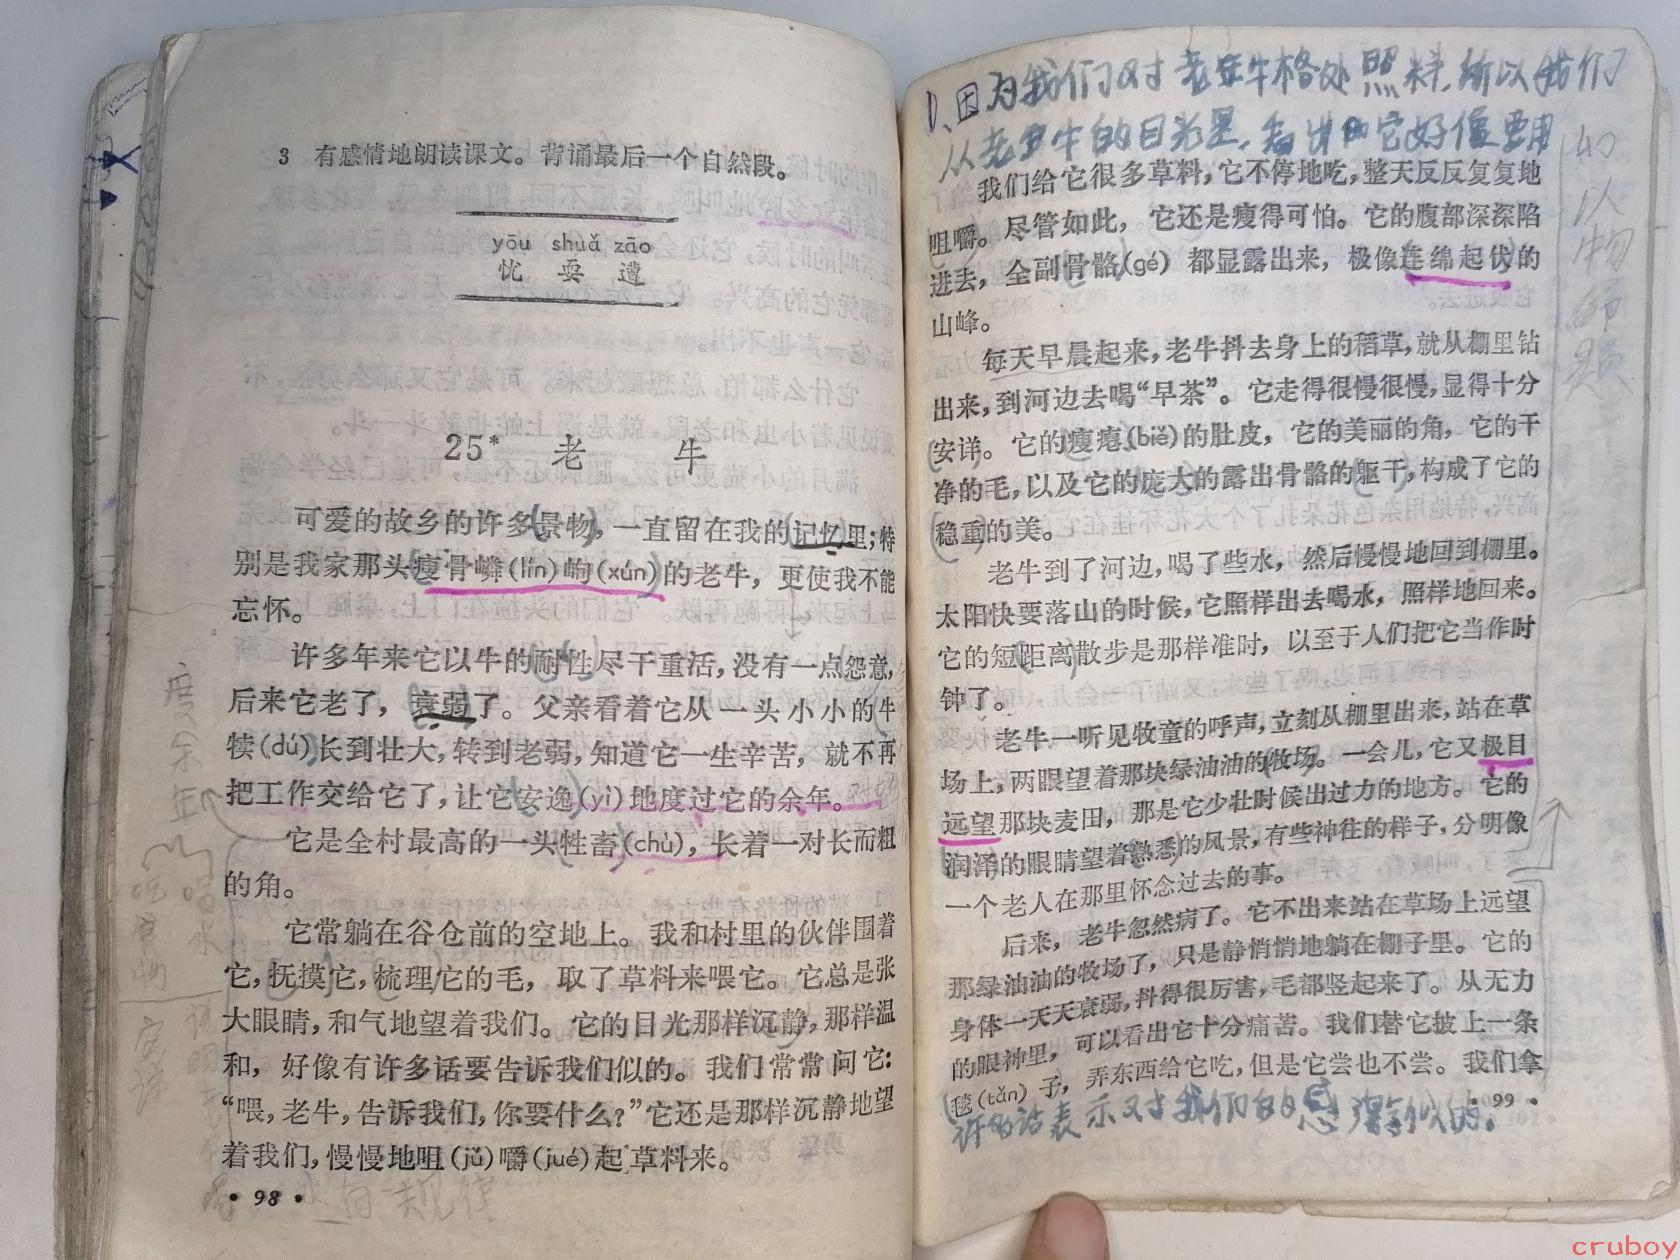 3 有感情地朗读课文。背诵最后一个自然段。
yōu shuǎ zāo
忧 耍 遭
25* 老 牛
可爱的故乡的许多景物，一直留在我的记忆里；特
别是我家那头瘦骨嶙(lín)峋(xún)的老牛，更使我不能
忘怀。
许多年来它以牛的耐性尽干重活，没有一点怨意，
后来它老了，衰弱了。父亲看着它从一头小小的牛
犊(dú)长到壮大，转到老弱，知道它一生辛苦，就不再
把工作交给它了，让它安逸(yì)地度过它的余年。
它是全村最高的一头牲畜(chù)，长着一对长而粗
的角。
它常躺在谷仓前的空地上。我和村里的伙伴围着
它，抚摸它，梳理它的毛，取了草料来喂它。它总是张
大眼睛，和气地望着我们。它的目光那样沉静，那样温
和，好像有许多话要告诉我们似的。我们常常问它：
“喂，老牛，告诉我们，你要什么？”它还是那样沉静地望
着我们，慢慢地咀(jǔ)嚼(jué)起草料来。
• 98 •
度余年
喝水
吃食物
1、因为我们对老牛格处照料，所以我们
从老牛的目光里，看出的它好像要用
我们给它很多草料，它不停地吃，整天反反复复地
咀嚼。尽管如此，它还是瘦得可怕。它的腹部深深陷
进去，全副骨骼(gé)都显露出来，极像连绵起伏的
山峰。
每天早晨起来，老牛抖去身上的稻草，就从棚里钻
出来，到河边去喝“早茶”。它走得很慢很慢，显得十分
安详。它的瘦瘪(biě)的肚皮，它的美丽的角，它的干
净的毛，以及它的庞大的露出骨骼的躯干，构成了它的
稳重的美。
老牛到了河边，喝了些水，然后慢慢地回到棚里。
太阳快要落山的时候，它照样出去喝水，照样地回来。
它的短距离散步是那样准时，以至于人们把它当作时
钟了。
老牛一听见牧童的呼声，立刻从棚里出来，站在草
场上，两眼望着那块绿油油的牧场。一会儿，它又极目
远望那块麦田，那是它少壮时候出过力的地方。它的
润泽的眼睛望着熟悉的风景，有些神往的样子，分明像
一个老人在那里怀念过去的事。
后来，老牛忽然病了。它不出来站在草场上远望
那绿油油的牧场了，只是静悄悄地躺在棚子里。它的
身体一天天衰弱，抖得很厉害，毛都竖起来了。从无力
的眼神里，可以看出它十分痛苦。我们替它披上一条
毯(tǎn)子，弄东西给它吃，但是它尝也不尝。我们拿
• 99 •
许多话表示对我们的感谢似的。
cruboy